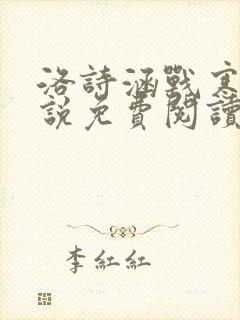 洛詩涵戰寒
說免費閱讀
李紅紅